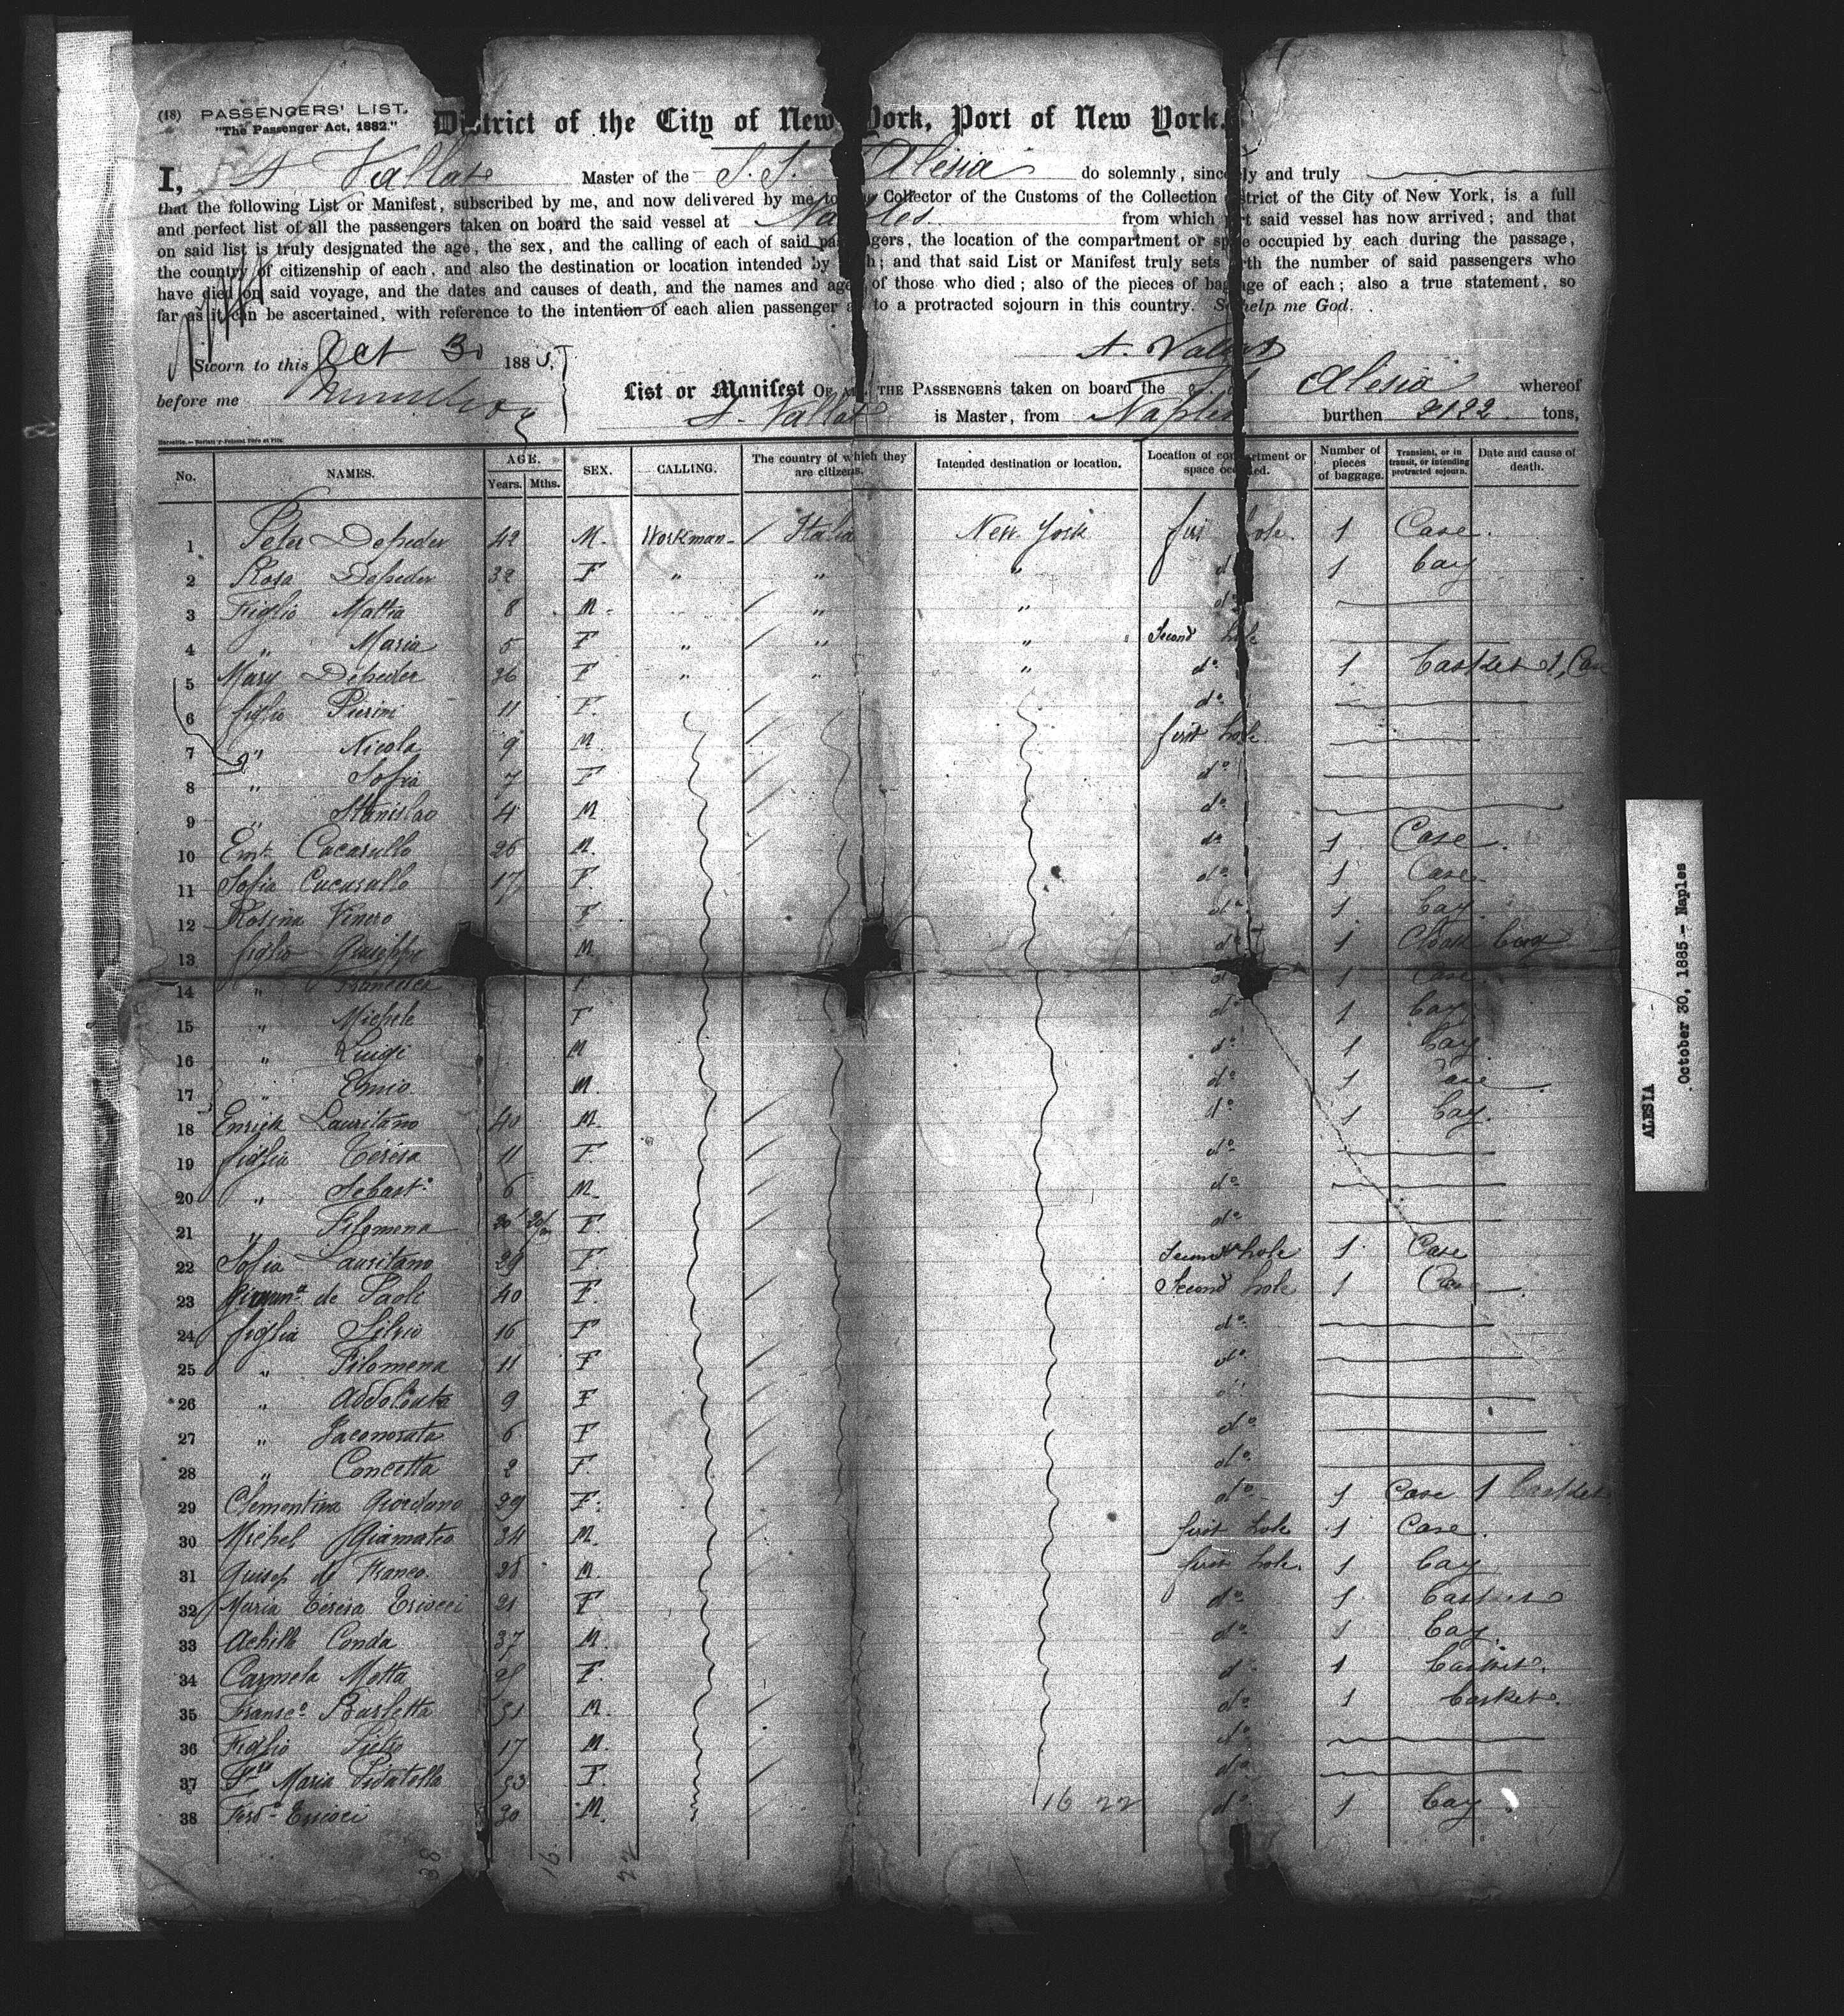 (18) PASSENGERS' LIST.
"The Passenger Act, 1882."
District of the City of New York, Port of New York.
I, A Vallat Master of the S.S. Alesia do solemnly, sincerely and truly
that the following List or Manifest, subscribed by me, and now delivered by me to Collector of the Customs of the Collection District of the City of New York, is a full
and perfect list of all the passengers taken on board the said vessel at Naples from which said vessel has now arrived; and that
on said list is truly designated the age, the sex, and the calling of each of said passengers, the location of the compartment or space occupied by each during the passage,
the country of citizenship of each, and also the destination or location intended by each; and that said List or Manifest truly sets forth the number of said passengers who
have died on said voyage, and the dates and causes of death, and the names and ages of those who died; also of the pieces of baggage of each; also a true statement, so
far as it can be ascertained, with reference to the intention of each alien passenger as to a protracted sojourn in this country. So help me God.
Sworn to this Oct 30 1885,
A. Vallat
before me
List or Manifest OF ALL THE PASSENGERS taken on board the S.S. Alesia whereof
A. Vallat is Master, from Naples burthen 2122 tons,
No. NAMES. AGE. Years. Mths. SEX. CALLING. The country of which they are citizens. Intended destination or location. Location of compartment or space occupied. Number of pieces of baggage. Transient, or in transit, or intending protracted sojourn. Date and cause of death.
1 Peter Depeder 42 M. Workman Italia New York first hole. 1 Case.
2 Rosa Depeder 32 F " " " do 1 bag
3 Figlio Mattia 8 M. " " do
4 " Maria 5 F " " " Second hole
5 Mary Depeder 36 F " " " do 1 basket 1 Case
6 figlio Pierini 11 F. do
7 " Nicola 9 M. first hole
8 " Sofia 7 F do
9 " Stanislao 4 M do
10 Cucarullo 26 M. do 1 Case.
11 Sofia Cucarullo 17 F. do 1 Case
12 Rosina Vinero F do 1 bag
13 figlio Guiseppe M. do 1 bag
14 " Francesca F do 1 Case
15 " Michele F do 1 bag
16 " Luigi M do 1 bag
17 " M. do 1 Case
18 Enrick Lauritano 40 M. do 1 bag.
19 figlia Teresa 11 F. do
20 " Sebast. 6 M. do
21 " Filomena F. do
22 Sofia Lauritano 29 F. Second hole 1 Case
23 de Paoli 40 F. Second hole 1 Case
24 figlia Silvio 16 F do
25 " Filomena 11 F do
26 " Addolcata 9 F do
27 " Jaconorata 6 F do
28 " Concetta 2 F. do
29 Clementina Giordano 29 F. do 1 Case 1 basket
30 Michel Giamateo 34 M. first hole 1 Case.
31 Guisep de Franco. 28 M. first hole. 1 bag
32 Maria Teresa 21 F do 1 basket
33 Achille Conda 37 M. do 1 bag.
34 Carmela Motta F. do 1 basket.
35 Fransco Barletta 51 M. do 1 basket.
36 Figlio Pietro 17 M. do
37 Maria 53 F. do
38 30 M. 16 22 do 1 bag
38 16 22
ALESIA -
October 30, 1885 - Naples